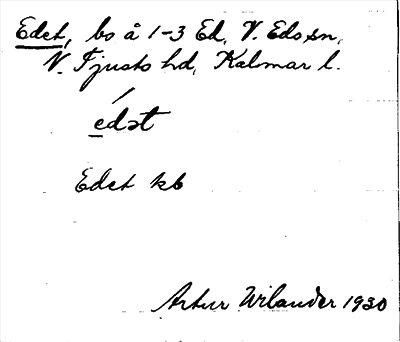 Edet, bo å 1-3 Ed, V. Eds sn,
N. Tjusts hd, Kalmar l.
edət
Edet kb
Artur Wilander 1930